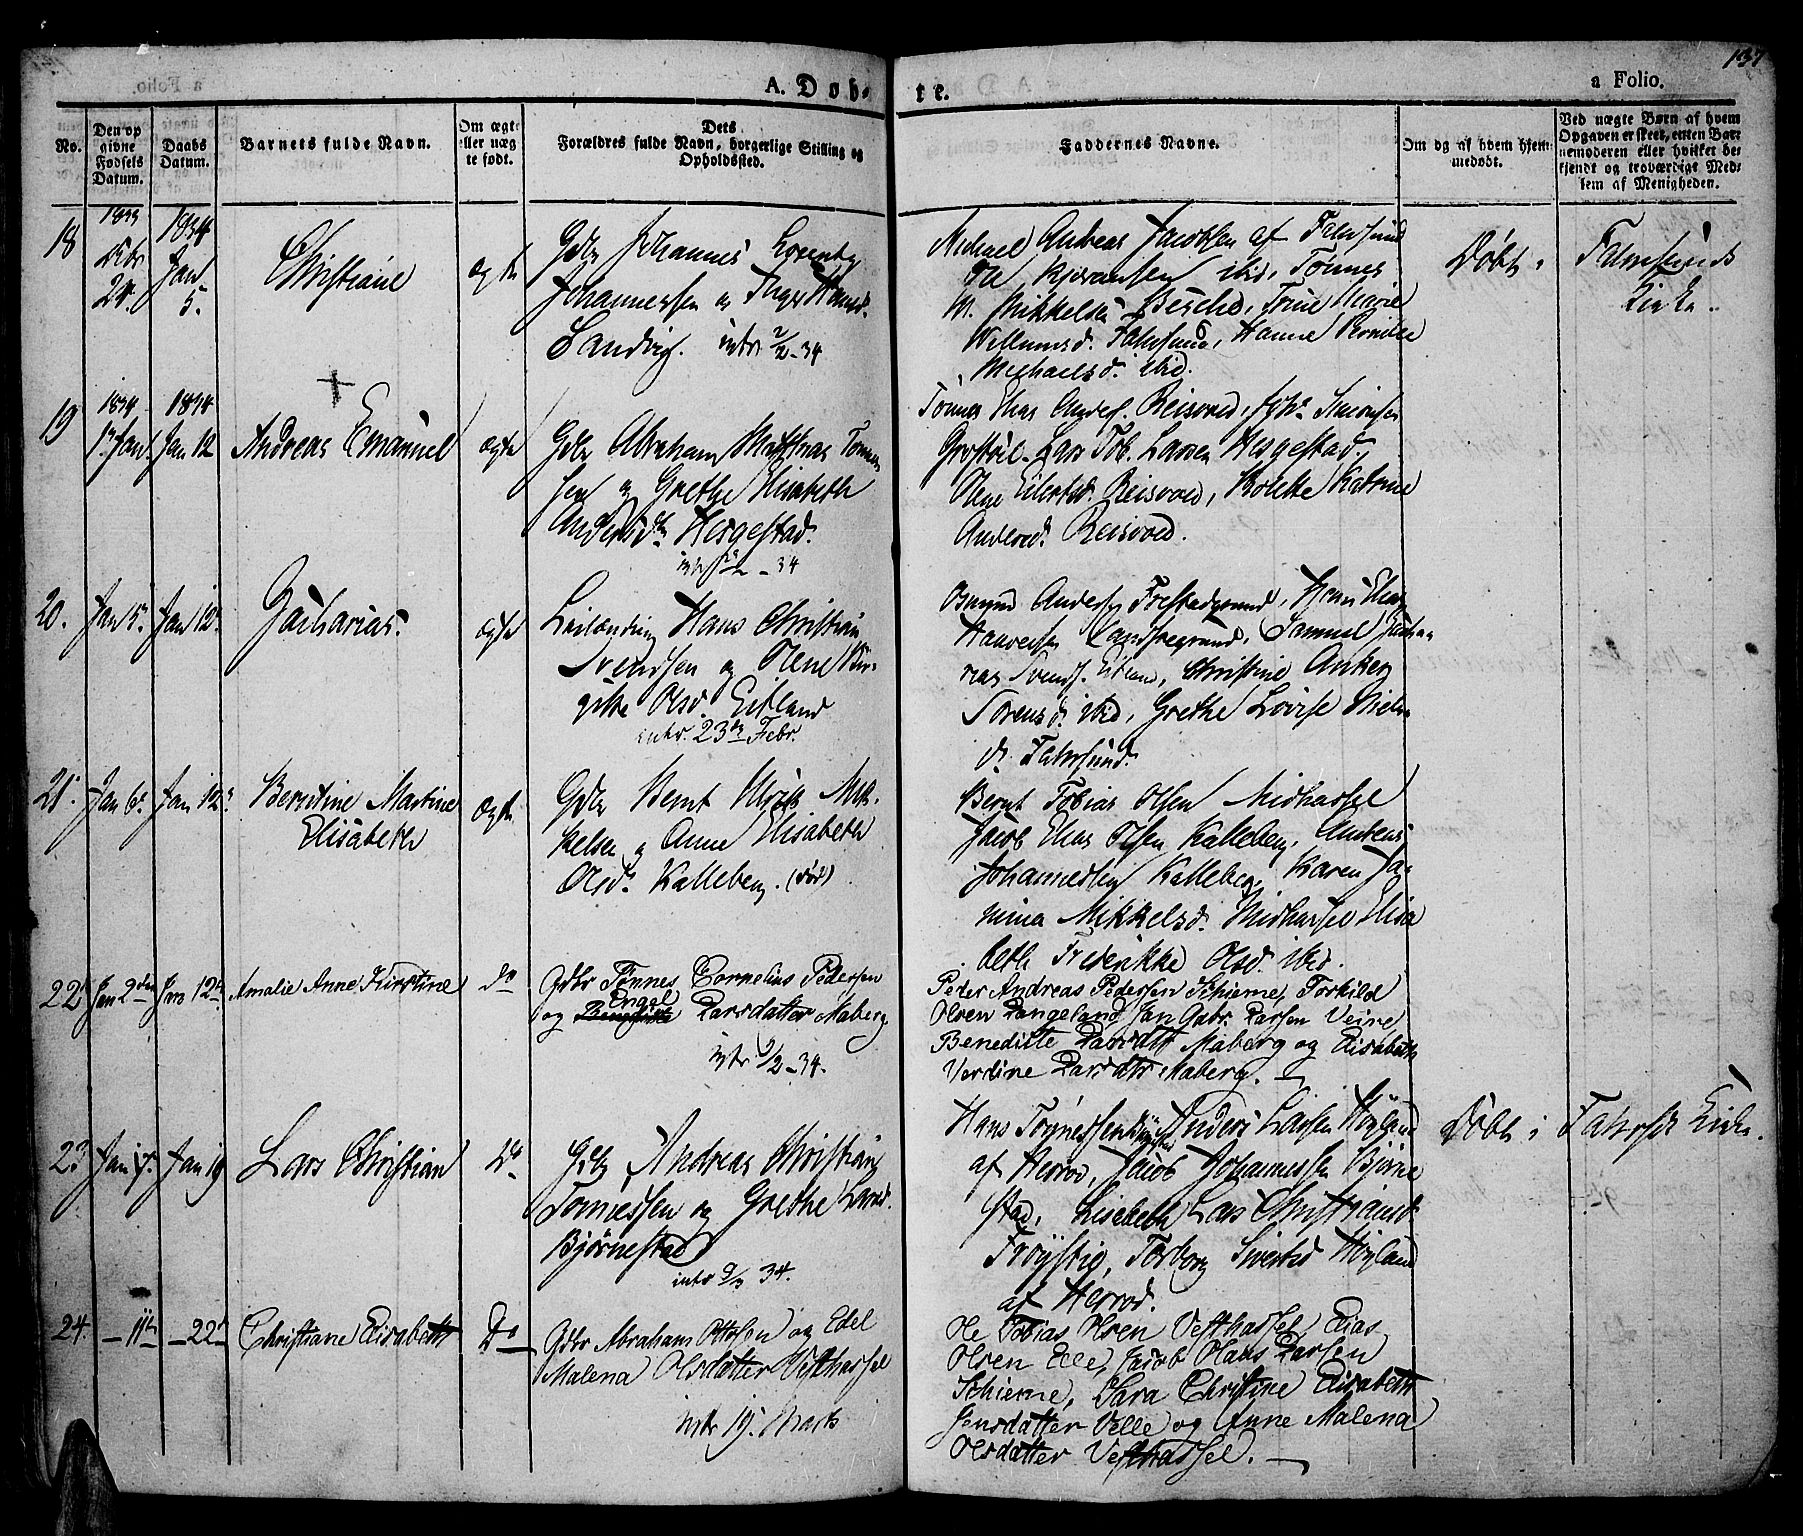 137
A. Døb-
te.
a Folio.
No.
Den op
givne
Fødsels
Datum.
Daabs
Datum.
Barnets fulde Navn.
Om ægte
eller uæg
te født.
Dets
Forældres fulde Navn, borgerlige Stilling og
Opholdssted.
Faddernes Navne.
Om og af hvem hjem
medøbt.
Ved uægte Børn af hvem
Opgaven er skeet, enten Bar
nemoderen eller hvilket be
kjendt og troværdigt Med-
lem af Menigheden.
18
1833
Decbr
24.
1834
Jan
5.
Christiane
ægte
Gdbr Johannes Lorentz
Johannessen og Inger Hansd.
Sandvig. intr 2/2-34
Michael Andreas Jacobsen af Fahrsund
Ole ibid, Tønnes
M. Mikkelsen Trine Marie
Willumsd. Fahrsund, Hanne
Michaelsd. ibid.
Døbt i
Fahrsunds
Kirke.
19
1834
1 Jan
1834
Jan 12
Andreas Emanuel
ægte
Gdbr Abraham Matthias Tønnes
sen og Grethe Elisabeth
Andersdtr Hesgestad.
intr -34
Tønnes Elias Anders. Reisvoed, Simonsen
Lars Tob. Larsen Hesgestad,
Olene Eilertsd. Reisvoed, Bolette Katrine
Andersd. Reisvoed.
20.
Jan 5
Jan 12
Zacharias.
ægte
Leilænding Hans Christian
Svendsen og Olene Bir-
gitte Olsd. Eitland
intr. 23de Febr.
Osmund Anders. Hans Elias
Samuel Zacha-
rias Svends. Eitland, Christine Anker
Sørensd. ibid, Grethe Lovise Niels
d. Fahrsund.
21.
Jan 6
Jan 12
Berntine Martine
Elisabeth
ægte
Gdbr Bernt Ulrich Mik-
kelsen og Anne Elisabeth
Olsd. Kalleberg. (død)
Bernt Tobias Olsen Midhassel
Jacob Elias Olsen Kalleberg, Andreas
Johannessen Kalleberg, Karen Ja-
mina Mikkelsd. Midhassel Elisa
beth Frederikke Olsd. ibid.
22
Jan 2den
Jan 12te
Amalie Anne Kirstine
do
Gdbr Tønnes Cornelius Pedersen
Engel
og Benedikte Larsdatter Maberg
intr 9/2-34.
Peder Andreas Pedersen Skierne, Torkild
Olsen Langeland, Jan Gabr. Larsen Veine,
Benedikte Larsdtr Maberg og Elisabeth
Verdine Larsdtr Maberg.
23
Jan
Jan 19
Lars Christian
Do
Gdbr Andreas Christian
Tønnessen og Grethe Larsd.
Bjørnestad
intr 9/3 34.
Hans Tønnessen Anders Larsen Høyland
af Herrod, Jacob Johannessen Bjørne
stad, Lisebeth Lars Christiansd.
Frøystig, Torborg Sivertsd Høyland
af Herrod.
Døbt i
Fahrsds Kirke.
24.
- 11te
- 22de
Christiane Elisabeth
Do
Gdbr Abraham Ottosen og Edel
Malena Olsdatter Vesthassel
intr 19. Marts
Ole Tobias Olsen Vesthassel, Elias
Olsen Elle, Jacob Olaus Larsen
Skierne, Sara Christine Elisabeth
Jensdatter Velle og Anne Malena
Olsdatter Vesthassel.